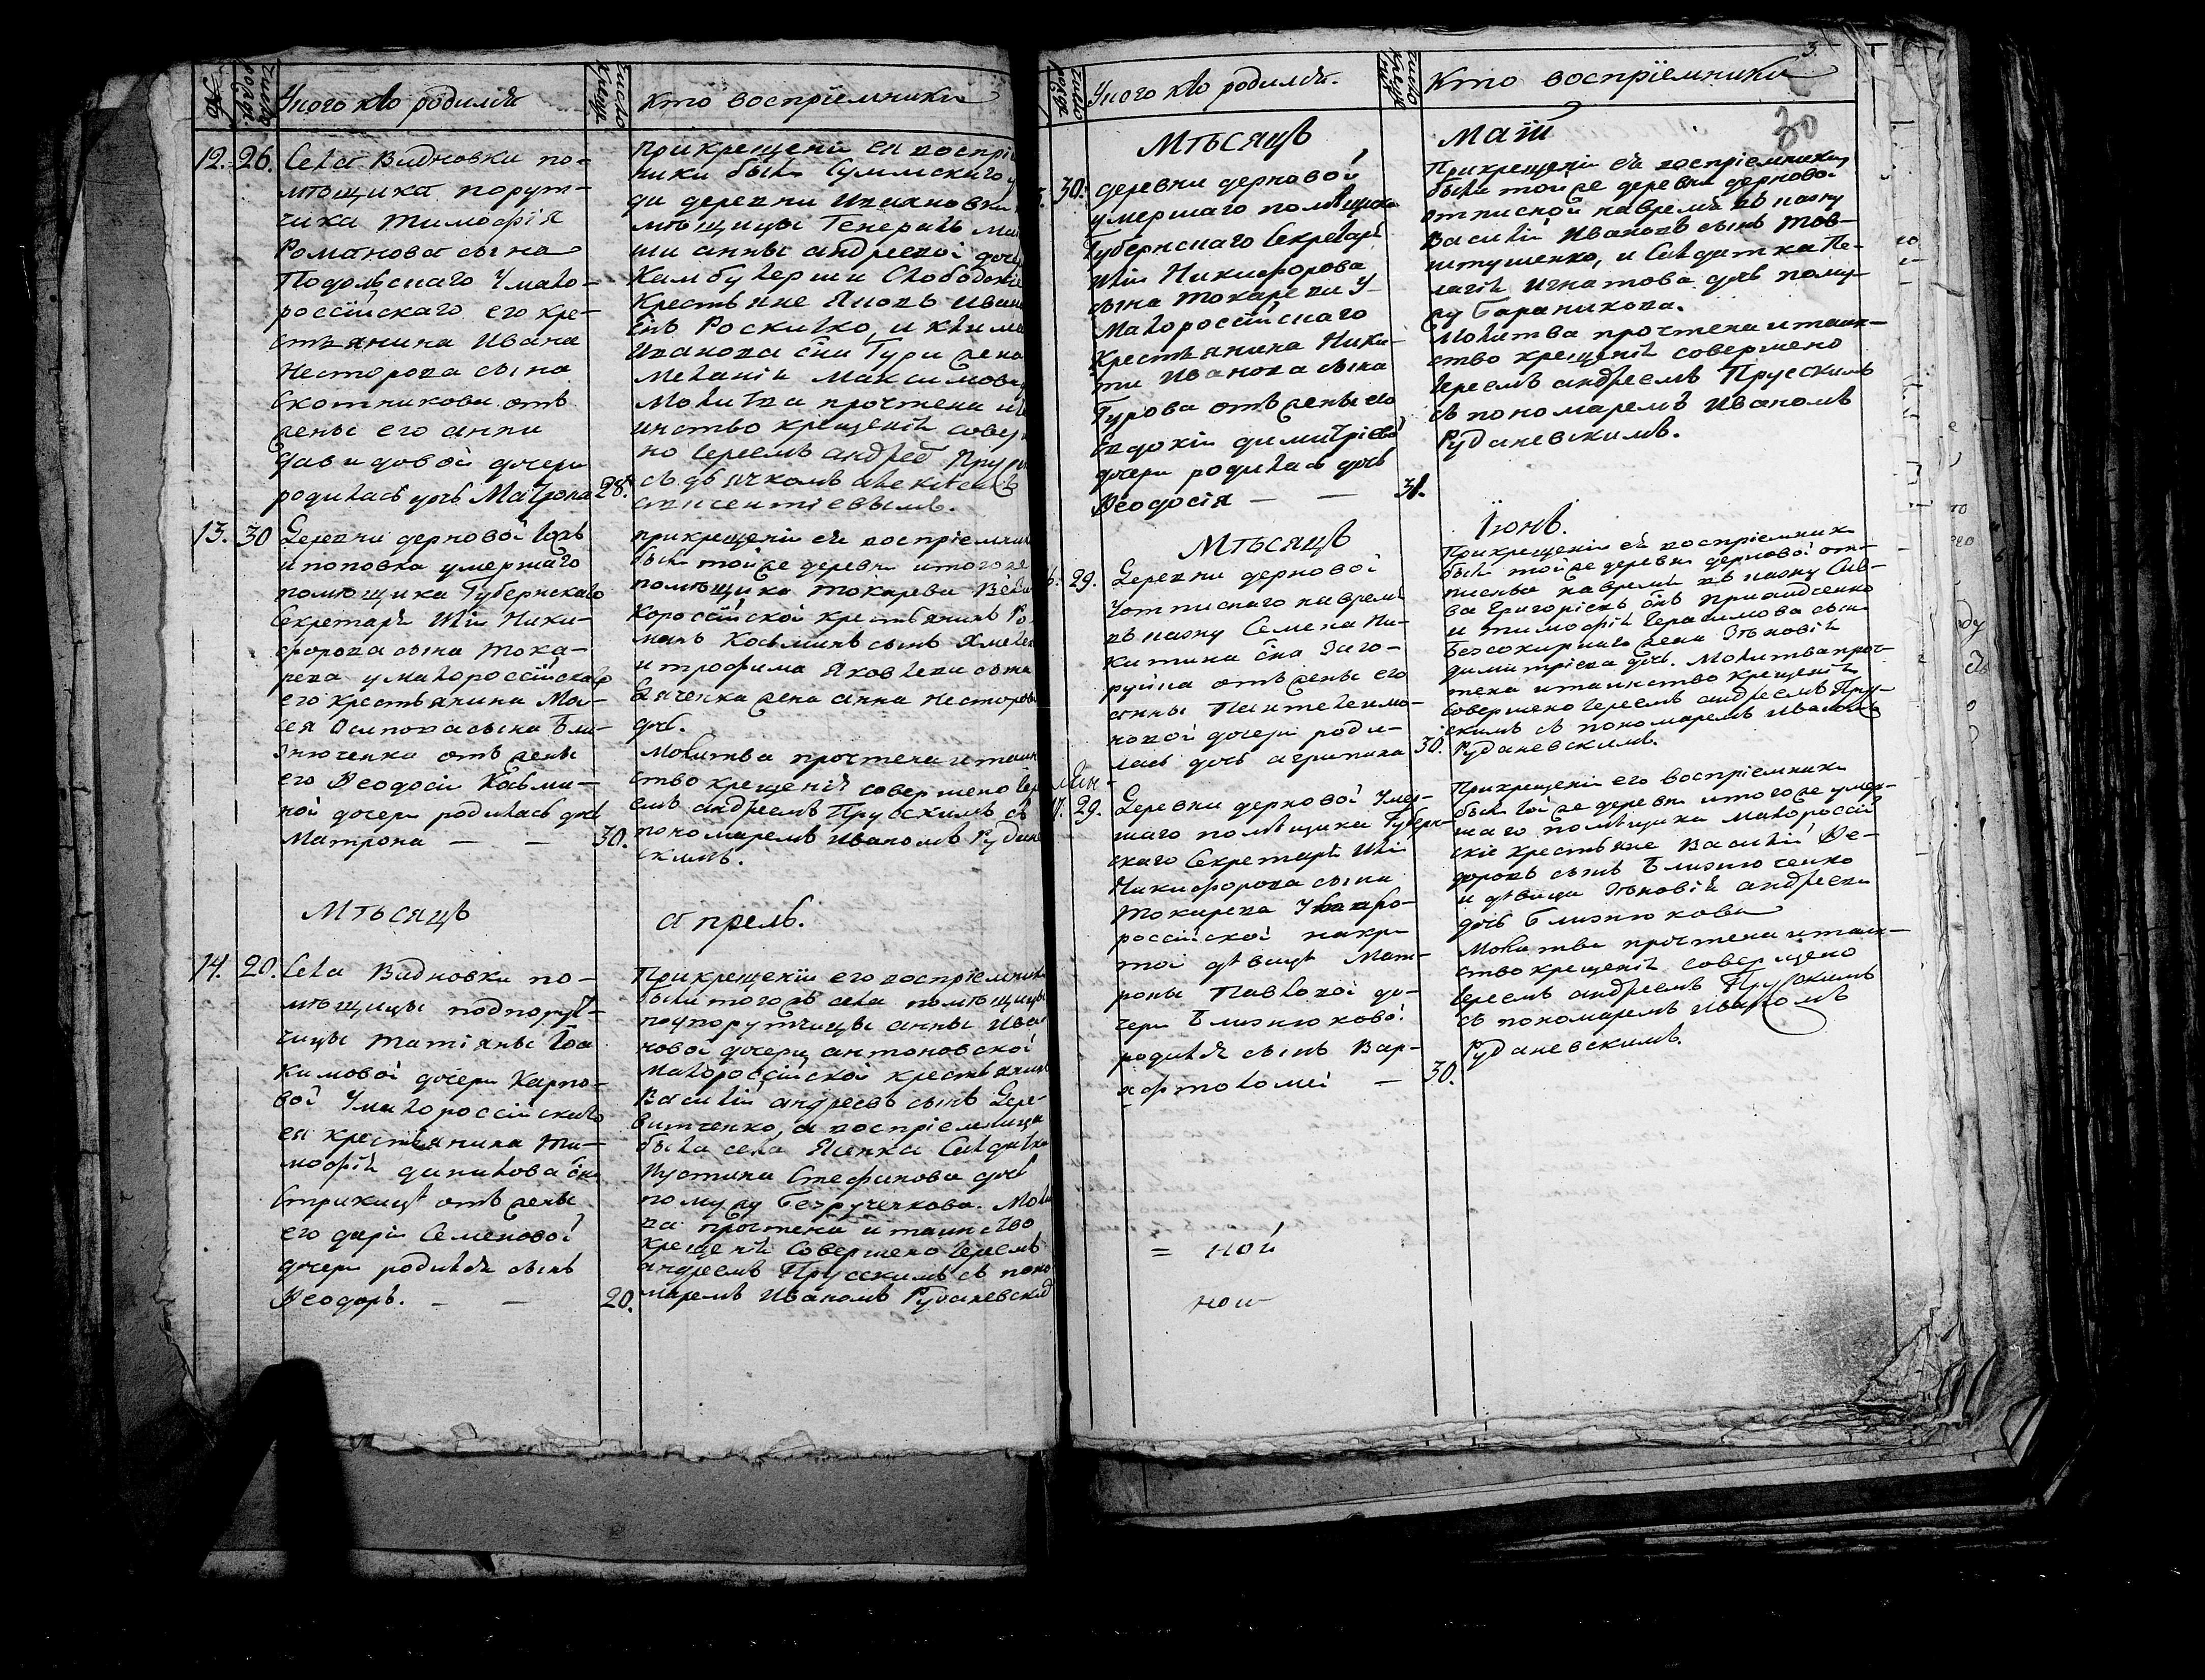 Число рожд.
У кого кто родился
Число крещ.
Кто восприемники
12. 26. Села Видновки по-
мѣщика порут-
чика Тимофія
Романова сына
Подольскаго у мало-
россійскаго его кре-
стьянина Ивана
Несторова сына
Скотникова отъ
жены его Анны
Давидовой дочери
родилась дочь Матрона 28.
При крещеніи ея воспріе
ники были Сумскаго у
да деревни Ивановки
мѣщицы Генералъ Ма
ши Анны Андреевой доче
Камбулерши Слободскіе
Крестьяне Яковъ Иван
снъ Роскилко, и Клима
Иванова сна Гури жена
Меланія Максимова
Молитва прочтена и
инство крещенія совер
но Іереемъ Андрее Прус
съ дьячкомъ Алексеемъ
13. 30 Деревни Дерновой
и поповка умершаго
помѣщика Губернскаго
Секретаря Иліи Ники-
форова сына Тока-
рева у малороссійскаго
его крестьянина Мо-
сея Осипова сына Бли-
знюченка отъ жены
его Ѳеодосіи Косьми-
ной дочери родилась дочь
Матрона — — 30.
При крещеніи ея воспріемни
были той же деревни и того же
помѣщика Токарева
короссійской крестьянинъ Ро
манъ Косьминъ сынъ Хмеле
и Трофима Яковлева сына
жена Анна Несторова
дочь.
Молитва прочтена и таин
ство крещенія совершено Іере
емъ Андреемъ Прусскимъ съ
пономаремъ Иваномъ Рудане
скимъ.
Мѣсяцъ
Апрель.
14. 20. Села Видновки по-
мѣщицы подпорут-
чицы Татіаны Іоа
кимовой дочери Карпо-
вой у малороссійскаго
ея крестьянина Ти-
мофія Данилова сна
Стрижицы отъ жены
его Даріи Семеновой
дочери родился сынъ
Ѳеодоръ. — — 20.
При крещеніи его воспріемник
были того жъ села помѣщицы
подпорутчицы Анны Ива
новой дочери Антоновской
малороссійской крестьянинъ
Василій Андреевъ сынъ Дере-
витченко, а воспріемница
была села Яленка Салдатка
Иустина Стефанова дочь
по мужу Безручечкова. Моли
ва прочтена и таинство
крещенія совершено Іереемъ
Андреемъ Прусскимъ съ поно
маремъ Иваномъ Руданевским
3.
30
Число рожд.
У кого кто родился.
Число крещ.
Кто воспріемники
Мѣсяцъ
Маій
30. деревни Дерновой
умершаго помѣщика
Губернскаго Секретаря
Иліи Никифорова
сына Токарева у
Малороссійскаго
Крестьянина Ники-
ты Иванова сына
Гурова отъ жены его
Евдокіи Димитріевой
дочери родилась дочь
Ѳеодосія — — 31.
При крещеніи ея воспріемники
были той же деревни Дерновой
отписной на время въ казну
Василій Ивановъ сынъ Тов-
штушенко, и Салдатка Пе-
лагія Игнатова дочь по му-
жу Бараникова.
Молитва прочтена и таин-
ство крещенія совершено
Іереемъ Андреемъ Прусскимъ
съ пономаремъ Иваномъ
Руданевскимъ.
Мѣсяцъ
Іюнь.
6. 29. Деревни Дерновой
у отписнаго на время
въ казну Семена Ни-
китина сна Заго-
руйка отъ жены его
Анны Пантелеимо-
новой дочери роди-
лась дочь Агрипина 30.
При крещеніи ея воспріемник
были той же деревни Дерновой от-
писныя на время въ казну Сав-
ва Григоріевъ снъ
и Тимофія Герасимова сына
Безсокирнаго жена Зѣновія
Димитріева дочь. Молитва проч-
тена и таинство крещенія
совершено Іереемъ Андреемъ Пру-
скимъ съ пономаремъ Иваномъ
Руданевскимъ.
17. 29. Деревни Дерновой умер-
шаго помѣщика Губерн-
скаго Секретаря Иліи
Никифорова сына
Токарева у малро-
россійской накры
той дѣвицы Мат-
роны Павловой до-
чери Близнюковой
родился сынъ Вар-
ѳоломей — 30.
При крещеніи его воспріемник
были той же деревни и того же умер-
шаго помѣщика малороссій
скіе крестьяне Василій Ѳе-
доровъ сынъ Близнюченко
и дѣвица Зѣновія Андреева
дочь Близнюкова
Молитва прочтена и таин-
ство крещенія совершено
Іереемъ Андреемъ Прусскимъ
съ пономаремъ Иваномъ
Руданевскимъ.
= ной